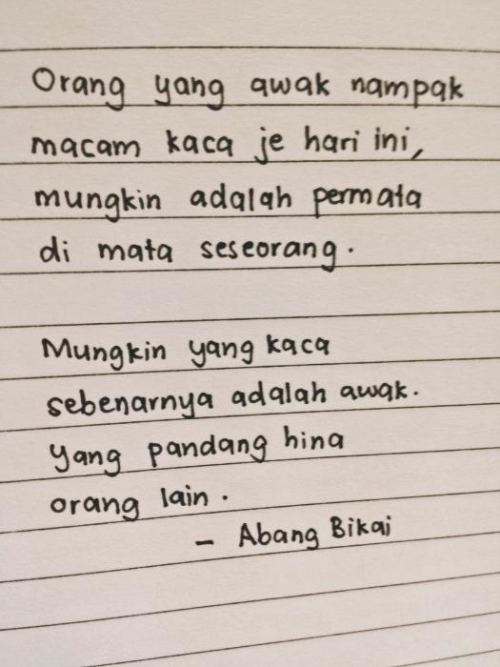 Orang yang awak nampak
macam kaca je hari ini,
mungkin adalah permata
di mata seseorang.
Mungkin yang kaca
sebenarnya adalah awak.
yang pandang hina
orang lain.
- Abang Bikai